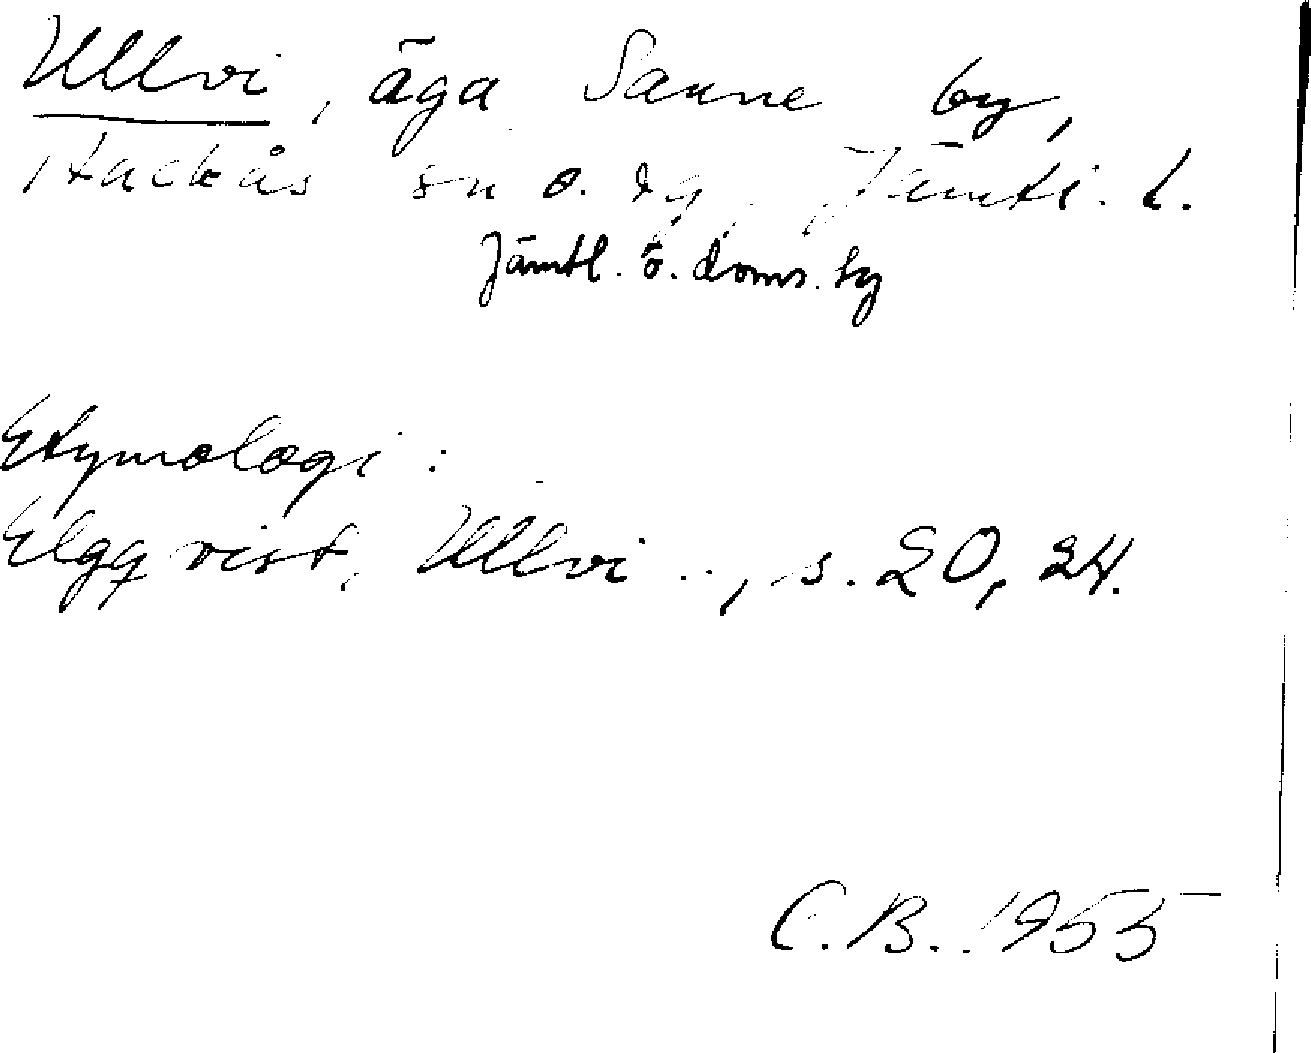 Ullvi, äga Sanne by,
Hackås sn o. tg, Jämtl. l.
Jämtl. ö. doms. hg
Etymologi:
Elgqvist, Ullvi .., s. 20, 24.
C.B. 1955